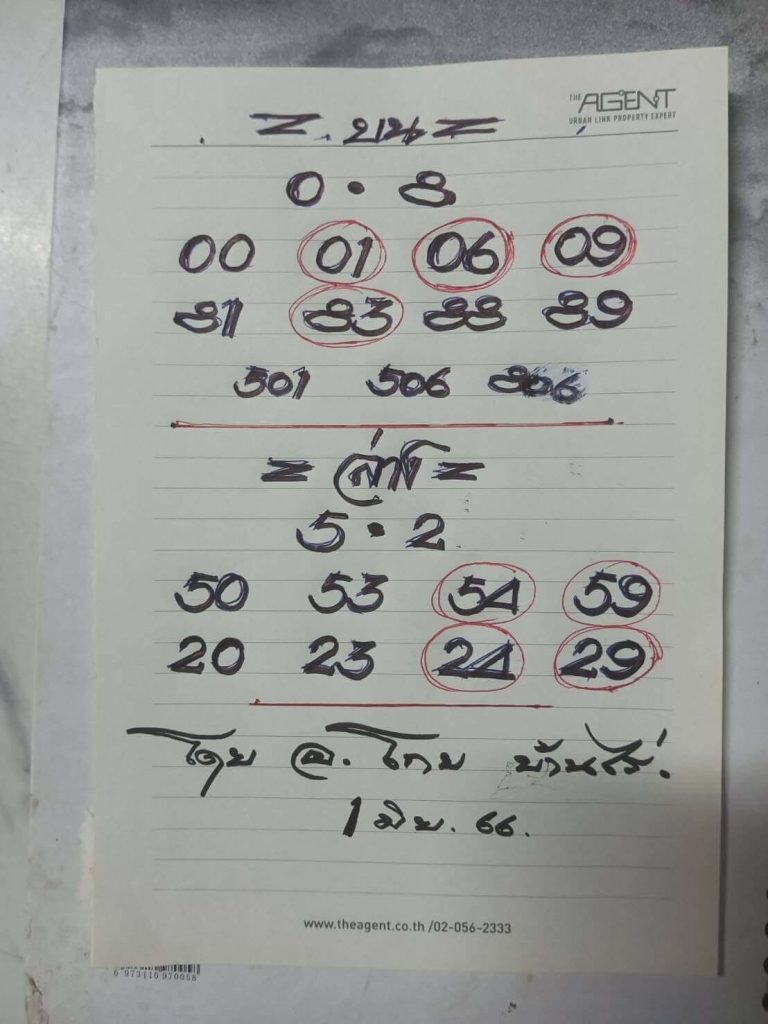 THE AGENT
URBAN LINK PROPERTY EXPERT
= บน =
0 • 8
00 01 06 09
81 83 88 89
501 506 806
= ล่าง =
5 • 2
50 53 54 59
20 23 24 29
โดย อ. โกย บ้านไร่.
1 มิย. 66.
www.theagent.co.th /02-056-2333
6 973110 970058